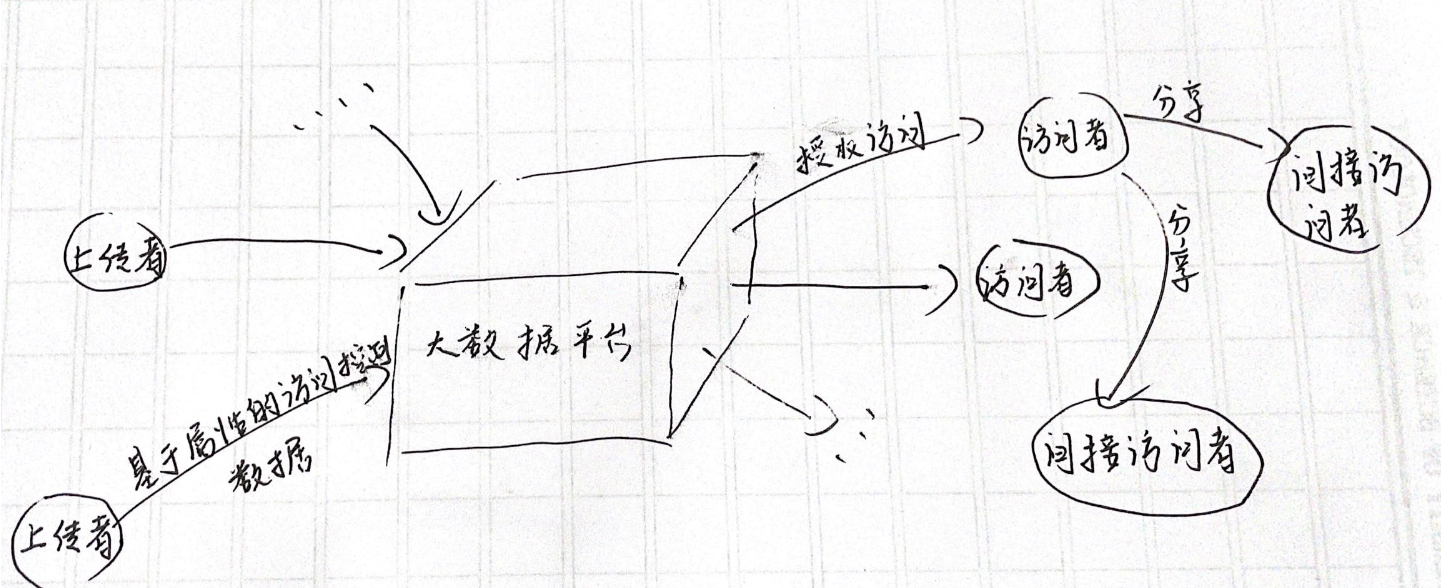 上传者
基于属性的访问控制
数据
上传者
大数据平台
授权访问
访问者
分享
间接访
问者
分享
访问者
间接访问者